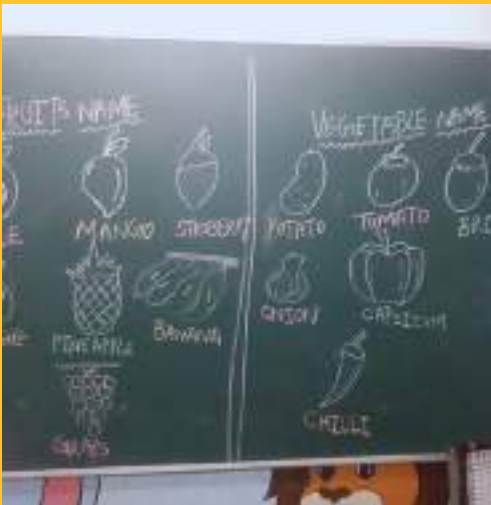 FRUITS NAME
MANGO
PINEAPPLE
BANANA
VEGETABLE NAME
POTATO
TOMATO
ONION
CAPSICUM
CHILLI